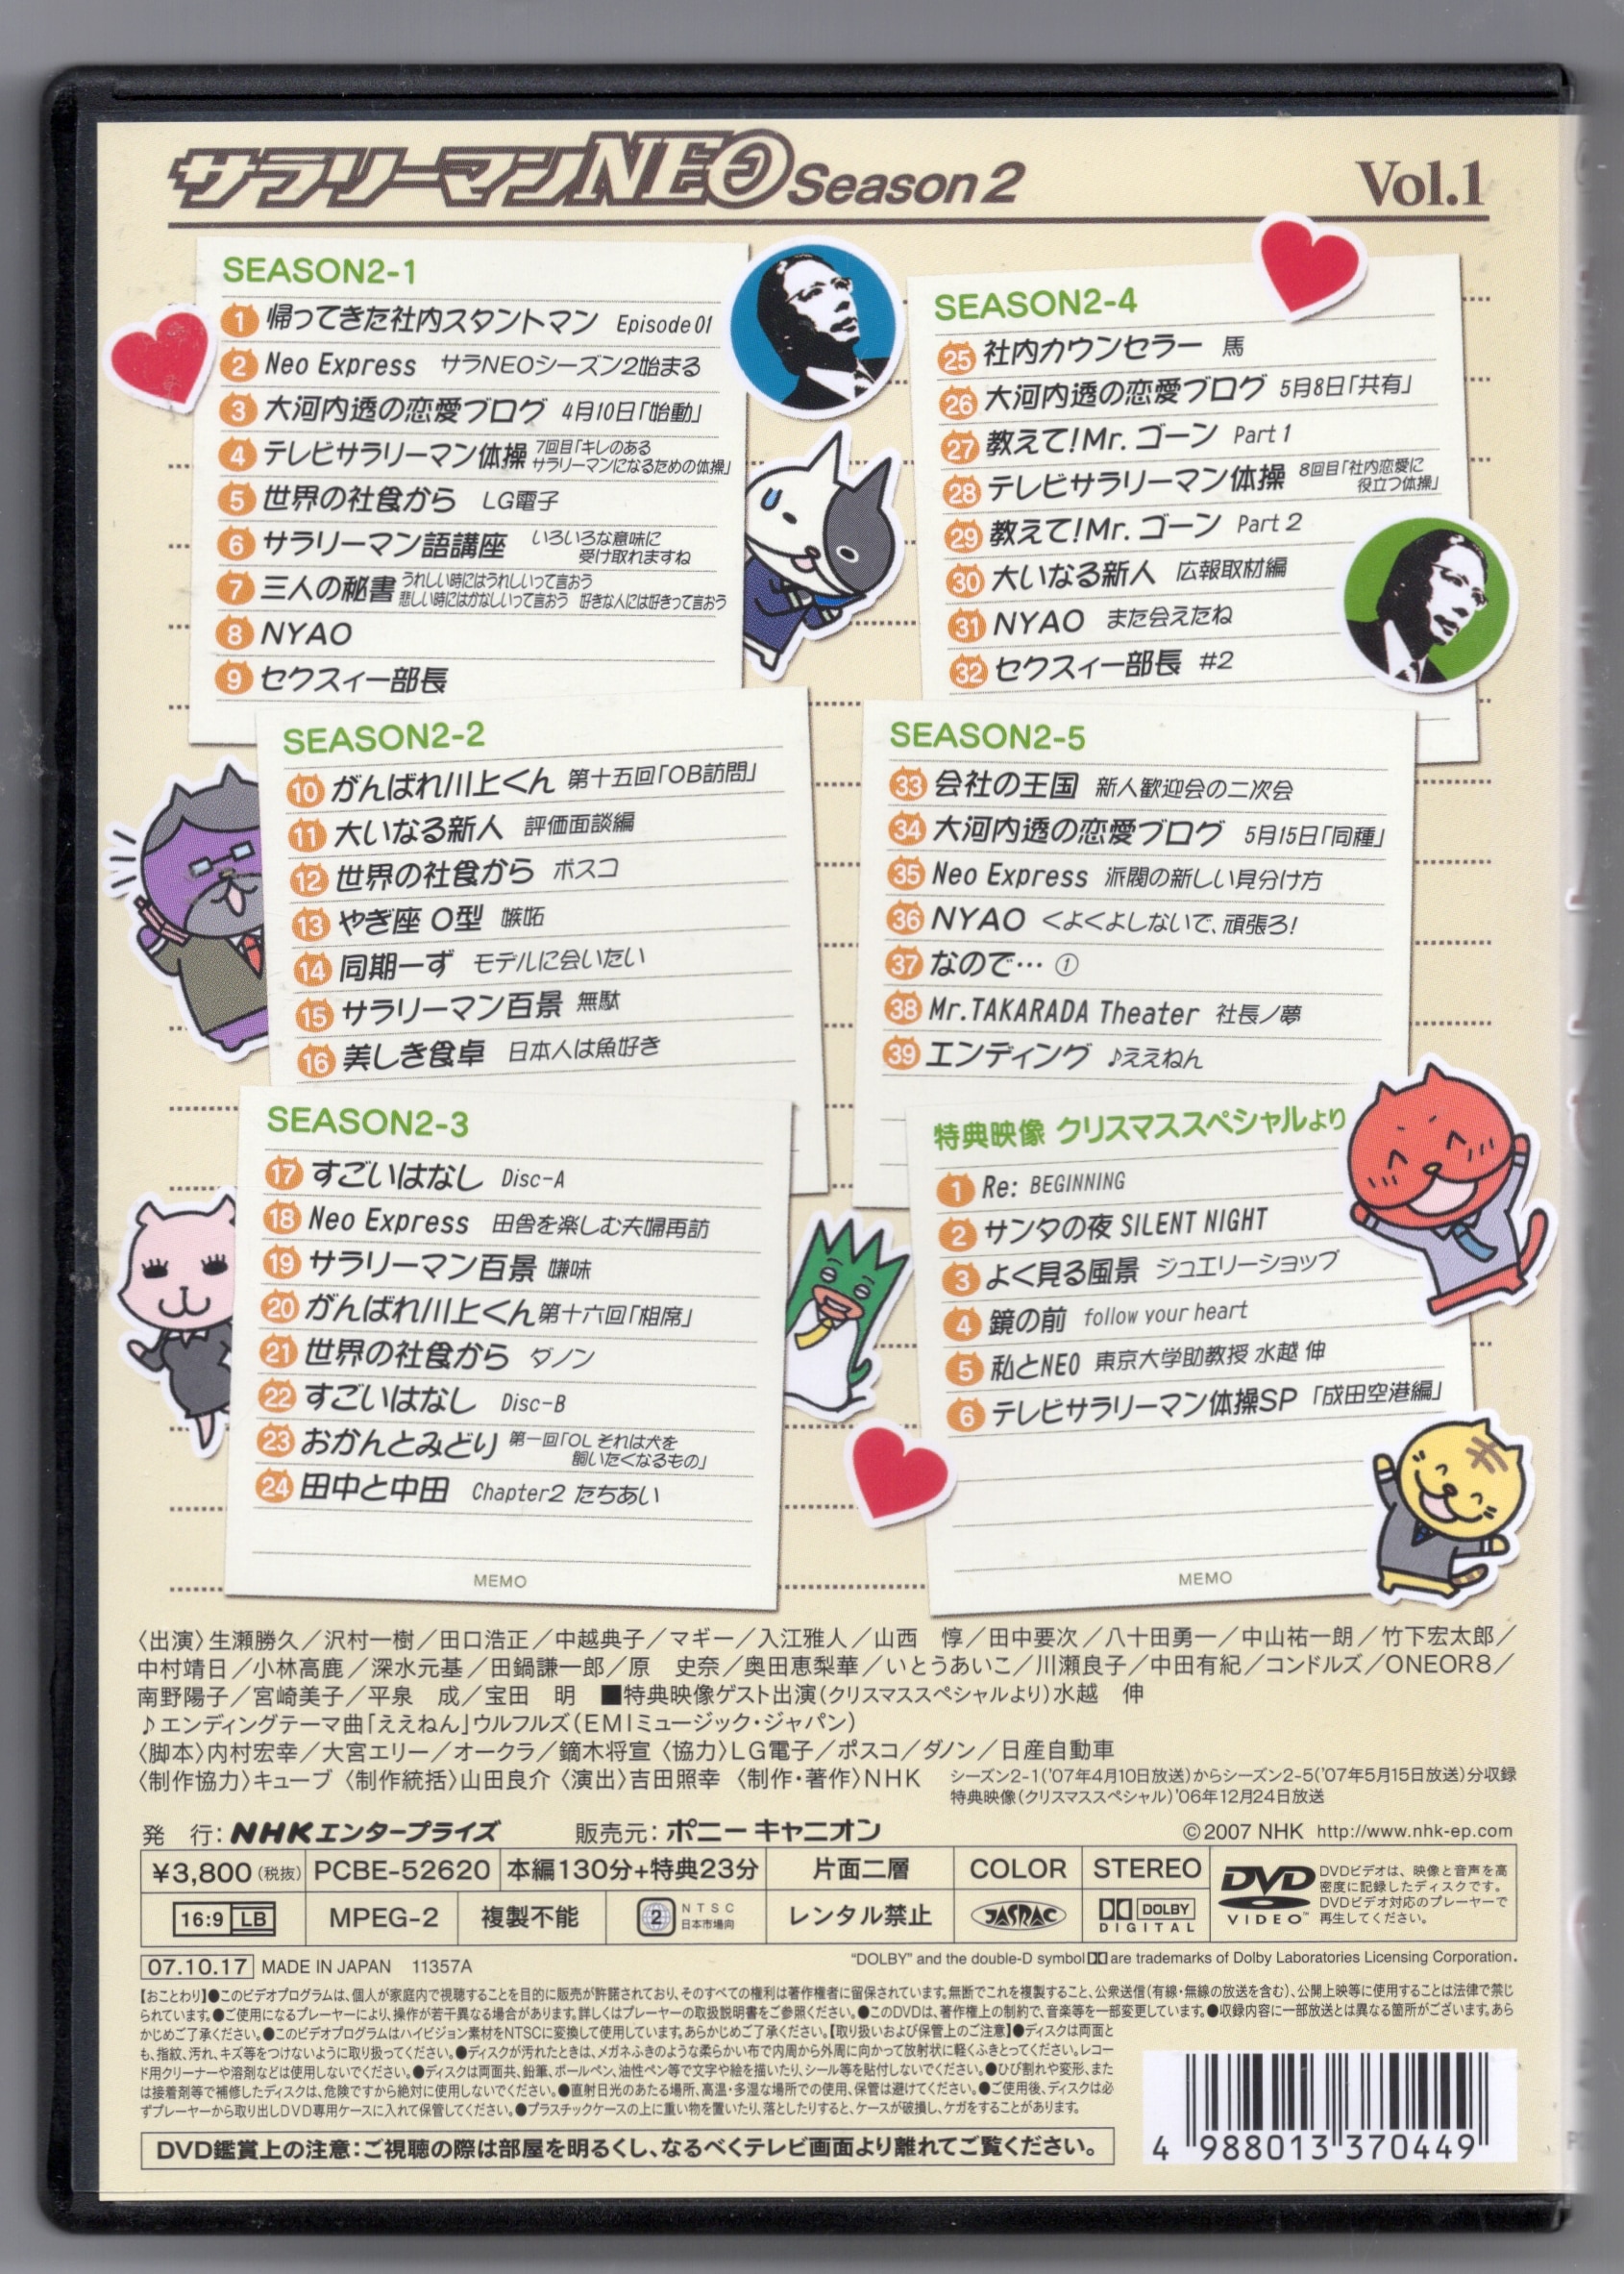 サラリーマンNEO Season 2
Vol.1
SEASON2-1
1 帰ってきた社内スタントマン Episode 01
2 Neo Express サラNEOシーズン2始まる
3 大河内透の恋愛ブログ 4月10日「始動」
4 テレビサラリーマン体操 7回目「キレのある
サラリーマンになるための体操」
5 世界の社食から LG電子
6 サラリーマン語講座 いろいろな意味に
受け取れますね
7 三人の秘書 うれしい時にはうれしいって言おう
悲しい時にはかなしいって言おう 好きな人には好きって言おう
8 NYAO
9 セクスィー部長
SEASON2-2
10 がんばれ川上くん 第十五回「OB訪問」
11 大いなる新人 評価面談編
12 世界の社食から ポスコ
13 やぎ座 O型 嫉妬
14 同期一ず モデルに会いたい
15 サラリーマン百景 無駄
16 美しき食卓 日本人は魚好き
SEASON2-3
17 すごいはなし Disc-A
18 Neo Express 田舎を楽しむ夫婦再訪
19 サラリーマン百景 嫌味
20 がんばれ川上くん 第十六回「相席」
21 世界の社食から ダノン
22 すごいはなし Disc-B
23 おかんとみどり 第一回「OL それは犬を
飼いたくなるもの」
24 田中と中田 Chapter2 たちあい
MEMO
SEASON2-4
25 社内カウンセラー 馬
26 大河内透の恋愛ブログ 5月8日「共有」
27 教えて!Mr. ゴーン Part 1
28 テレビサラリーマン体操 8回目「社内恋愛に
役立つ体操」
29 教えて!Mr. ゴーン Part 2
30 大いなる新人 広報取材編
31 NYAO また会えたね
32 セクスィー部長 #2
SEASON2-5
33 会社の王国 新人歓迎会の二次会
34 大河内透の恋愛ブログ 5月15日「同種」
35 Neo Express 派閥の新しい見分け方
36 NYAO くよくよしないで、頑張ろ!
37 なので… ①
38 Mr.TAKARADA Theater 社長ノ夢
39 エンディング ♪ええねん
特典映像 クリスマススペシャルより
1 Re: BEGINNING
2 サンタの夜 SILENT NIGHT
3 よく見る風景 ジュエリーショップ
4 鏡の前 follow your heart
5 私とNEO 東京大学助教授 水越 伸
6 テレビサラリーマン体操SP 「成田空港編」
MEMO
〈出演〉生瀬勝久／沢村一樹／田口浩正／中越典子／マギー／入江雅人／山西　惇／田中要次／八十田勇一／中山祐一朗／竹下宏太郎／
中村靖日／小林高鹿／深水元基／田鍋謙一郎／原　史奈／奥田恵梨華／いとうあいこ／川瀬良子／中田有紀／コンドルズ／ONEOR8／
南野陽子／宮崎美子／平泉　成／宝田　明　■特典映像ゲスト出演(クリスマススペシャルより)水越　伸
♪エンディングテーマ曲「ええねん」ウルフルズ(EMIミュージック・ジャパン)
〈脚本〉内村宏幸／大宮エリー／オークラ／鏑木将宣〈協力〉LG電子／ポスコ／ダノン／日産自動車
〈制作協力〉キューブ〈制作統括〉山田良介〈演出〉吉田照幸〈制作・著作〉NHK
シーズン2-1('07年4月10日放送)からシーズン2-5('07年5月15日放送)分収録
特典映像(クリスマススペシャル)'06年12月24日放送
発　行:NHKエンタープライズ　販売元:ポニーキャニオン　©2007 NHK http://www.nhk-ep.com
¥3,800(税抜) PCBE-52620 本編130分+特典23分 片面二層 COLOR STEREO
16:9 LB MPEG-2 複製不能 2 NTSC 日本市場向 レンタル禁止 JASRAC DOLBY DIGITAL
DVD VIDEO™
DVDビデオは、映像と音声を高
密度に記録したディスクです。
DVDビデオ対応のプレーヤーで
再生してください。
07.10.17 MADE IN JAPAN 11357A
"DOLBY" and the double-D symbol are trademarks of Dolby Laboratories Licensing Corporation.
【おことわり】●このビデオプログラムは、個人が家庭内で視聴することを目的に販売が許諾されており、そのすべての権利は著作権者に留保されています。無断でこれを複製すること、公衆送信(有線・無線の放送を含む)、公開上映等に使用することは法律で禁じ
られています。●ご使用になるプレーヤーにより、操作が若干異なる場合があります。詳しくはプレーヤーの取扱説明書をご参照ください。●このDVDは、著作権上の制約で、音楽等を一部変更しています。●収録内容に一部放送とは異なる箇所がございます。あら
かじめご了承ください。●このビデオプログラムはハイビジョン素材をNTSCに変換して使用しています。あらかじめご了承ください。【取り扱いおよび保管上のご注意】●ディスクは両面と
も、指紋、汚れ、キズ等をつけないように取り扱ってください。●ディスクが汚れたときは、メガネふきのような柔らかい布で内周から外周に向かって放射状に軽くふきとってください。レコー
ド用クリーナーや溶剤などは使用しないでください。●ディスクは両面共、鉛筆、ボールペン、油性ペン等で文字や絵を描いたり、シール等を貼付しないでください。●ひび割れや変形、また
は接着剤等で補修したディスクは、危険ですから絶対に使用しないでください。●直射日光のあたる場所、高温・多湿な場所での使用、保管は避けてください。●ご使用後、ディスクは必
ずプレーヤーから取り出しDVD専用ケースに入れて保管してください。●プラスチックケースの上に重い物を置いたり、落としたりすると、ケースが破損し、ケガをすることがあります。
DVD鑑賞上の注意:ご視聴の際は部屋を明るくし、なるべくテレビ画面より離れてご覧ください。
4 988013 370449